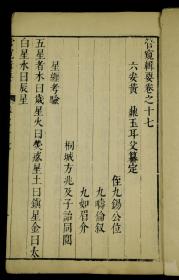 管窺輯要卷之十七
六安黃 鼎玉耳父纂定
侄九錫公位
九疇倫叙
九如眉介
桐城方兆及子詒同閱
星經考驗
五星者木曰歲星火曰熒惑星土曰鎮星金曰太
白星水曰辰星